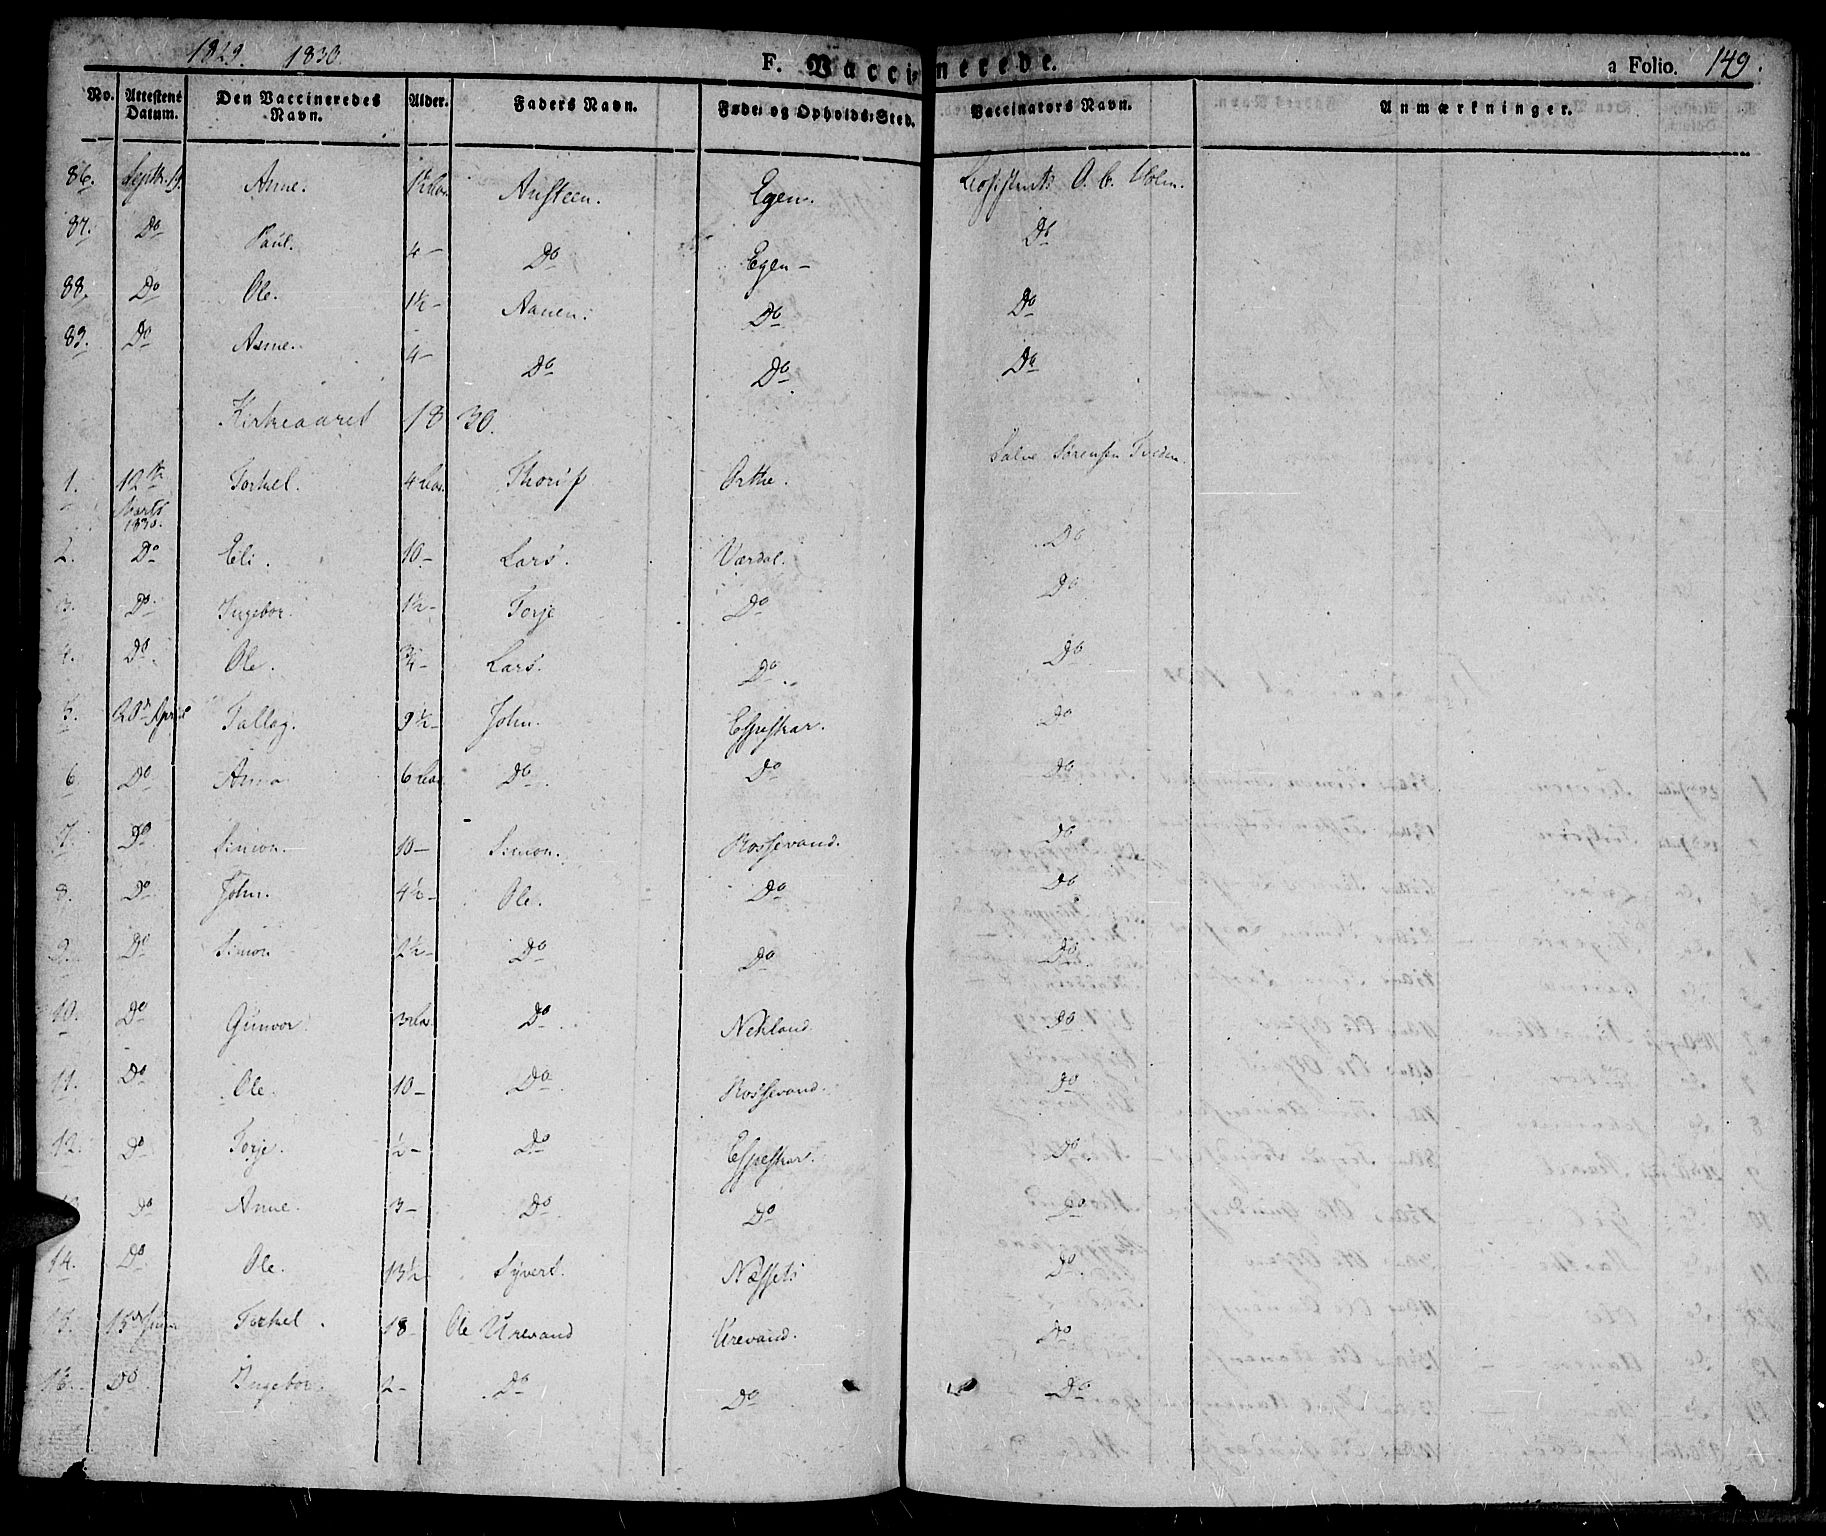 1829. 1830.
F. Vaccinerede.
a Folio. 149.
No. Attestens Datum. Den Vaccineredes Navn. Alder. Faders Navn. Føde- og Opholds-Sted. Vaccinators Navn. Anmærkninger.
86. Septb. 19. Anne. 1½ Aar Austeen. Egen. Assistent O. C. Holm.
87. Do Paul. 4 – Do Egen – Do
88. Do Ole. 1½ – Aanen. Do Do
89. Do Anne. 4 – Do Do Do
Kirkeaaret 1830.
1. 12te Marts 1830. Torkel. 4 Aar Thorif Orthe. Salve Sørensen Tveden.
2. Do Eli. 10 – Lars. Værdal. Do
3. Do Ingebor. 1½ – Torje Do Do
4. Do Ole. ¾ – Lars. Do Do
5. 20de April Tallag. 9½ – John. Espeskar. Do
6 Do Anna 6 Aar Do Do Do
7. Do Simon. 10 – Simon. Rossevand. Do
8. Do John. 4½ – Ole. Do Do
9. Do Simon 2½ – Do Do Do
10. Do Gunvor. 3 Aar Do Nehland. Do
11. Do Ole. 10 – Do Rossevand. Do
12. Do Torje. ½ – Do Espeskar. Do
13. Do Anne. 3 – Do Do Do
14. Do Ole. 13½ – Syvert. Næssets Do
15. 15de Juni Torkel. 18 – Ole Urevand Urevand. Do
16. Do Ingebor. 2 – Do Do Do